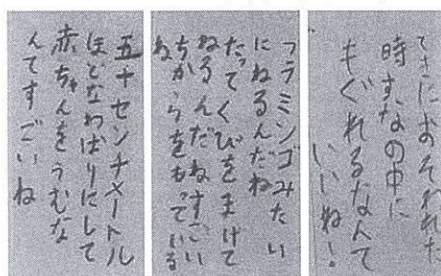 てきにおそわれた
時すなの中に
もぐれるなんて
いいね!
フラミンゴみたい
にねるんだね
たってくびをまげて
ねるんだねすごい
ちからをもっている
ね
五十センチメートル
ほどなわばりにして
赤ちゃんをうむな
んてすごいね